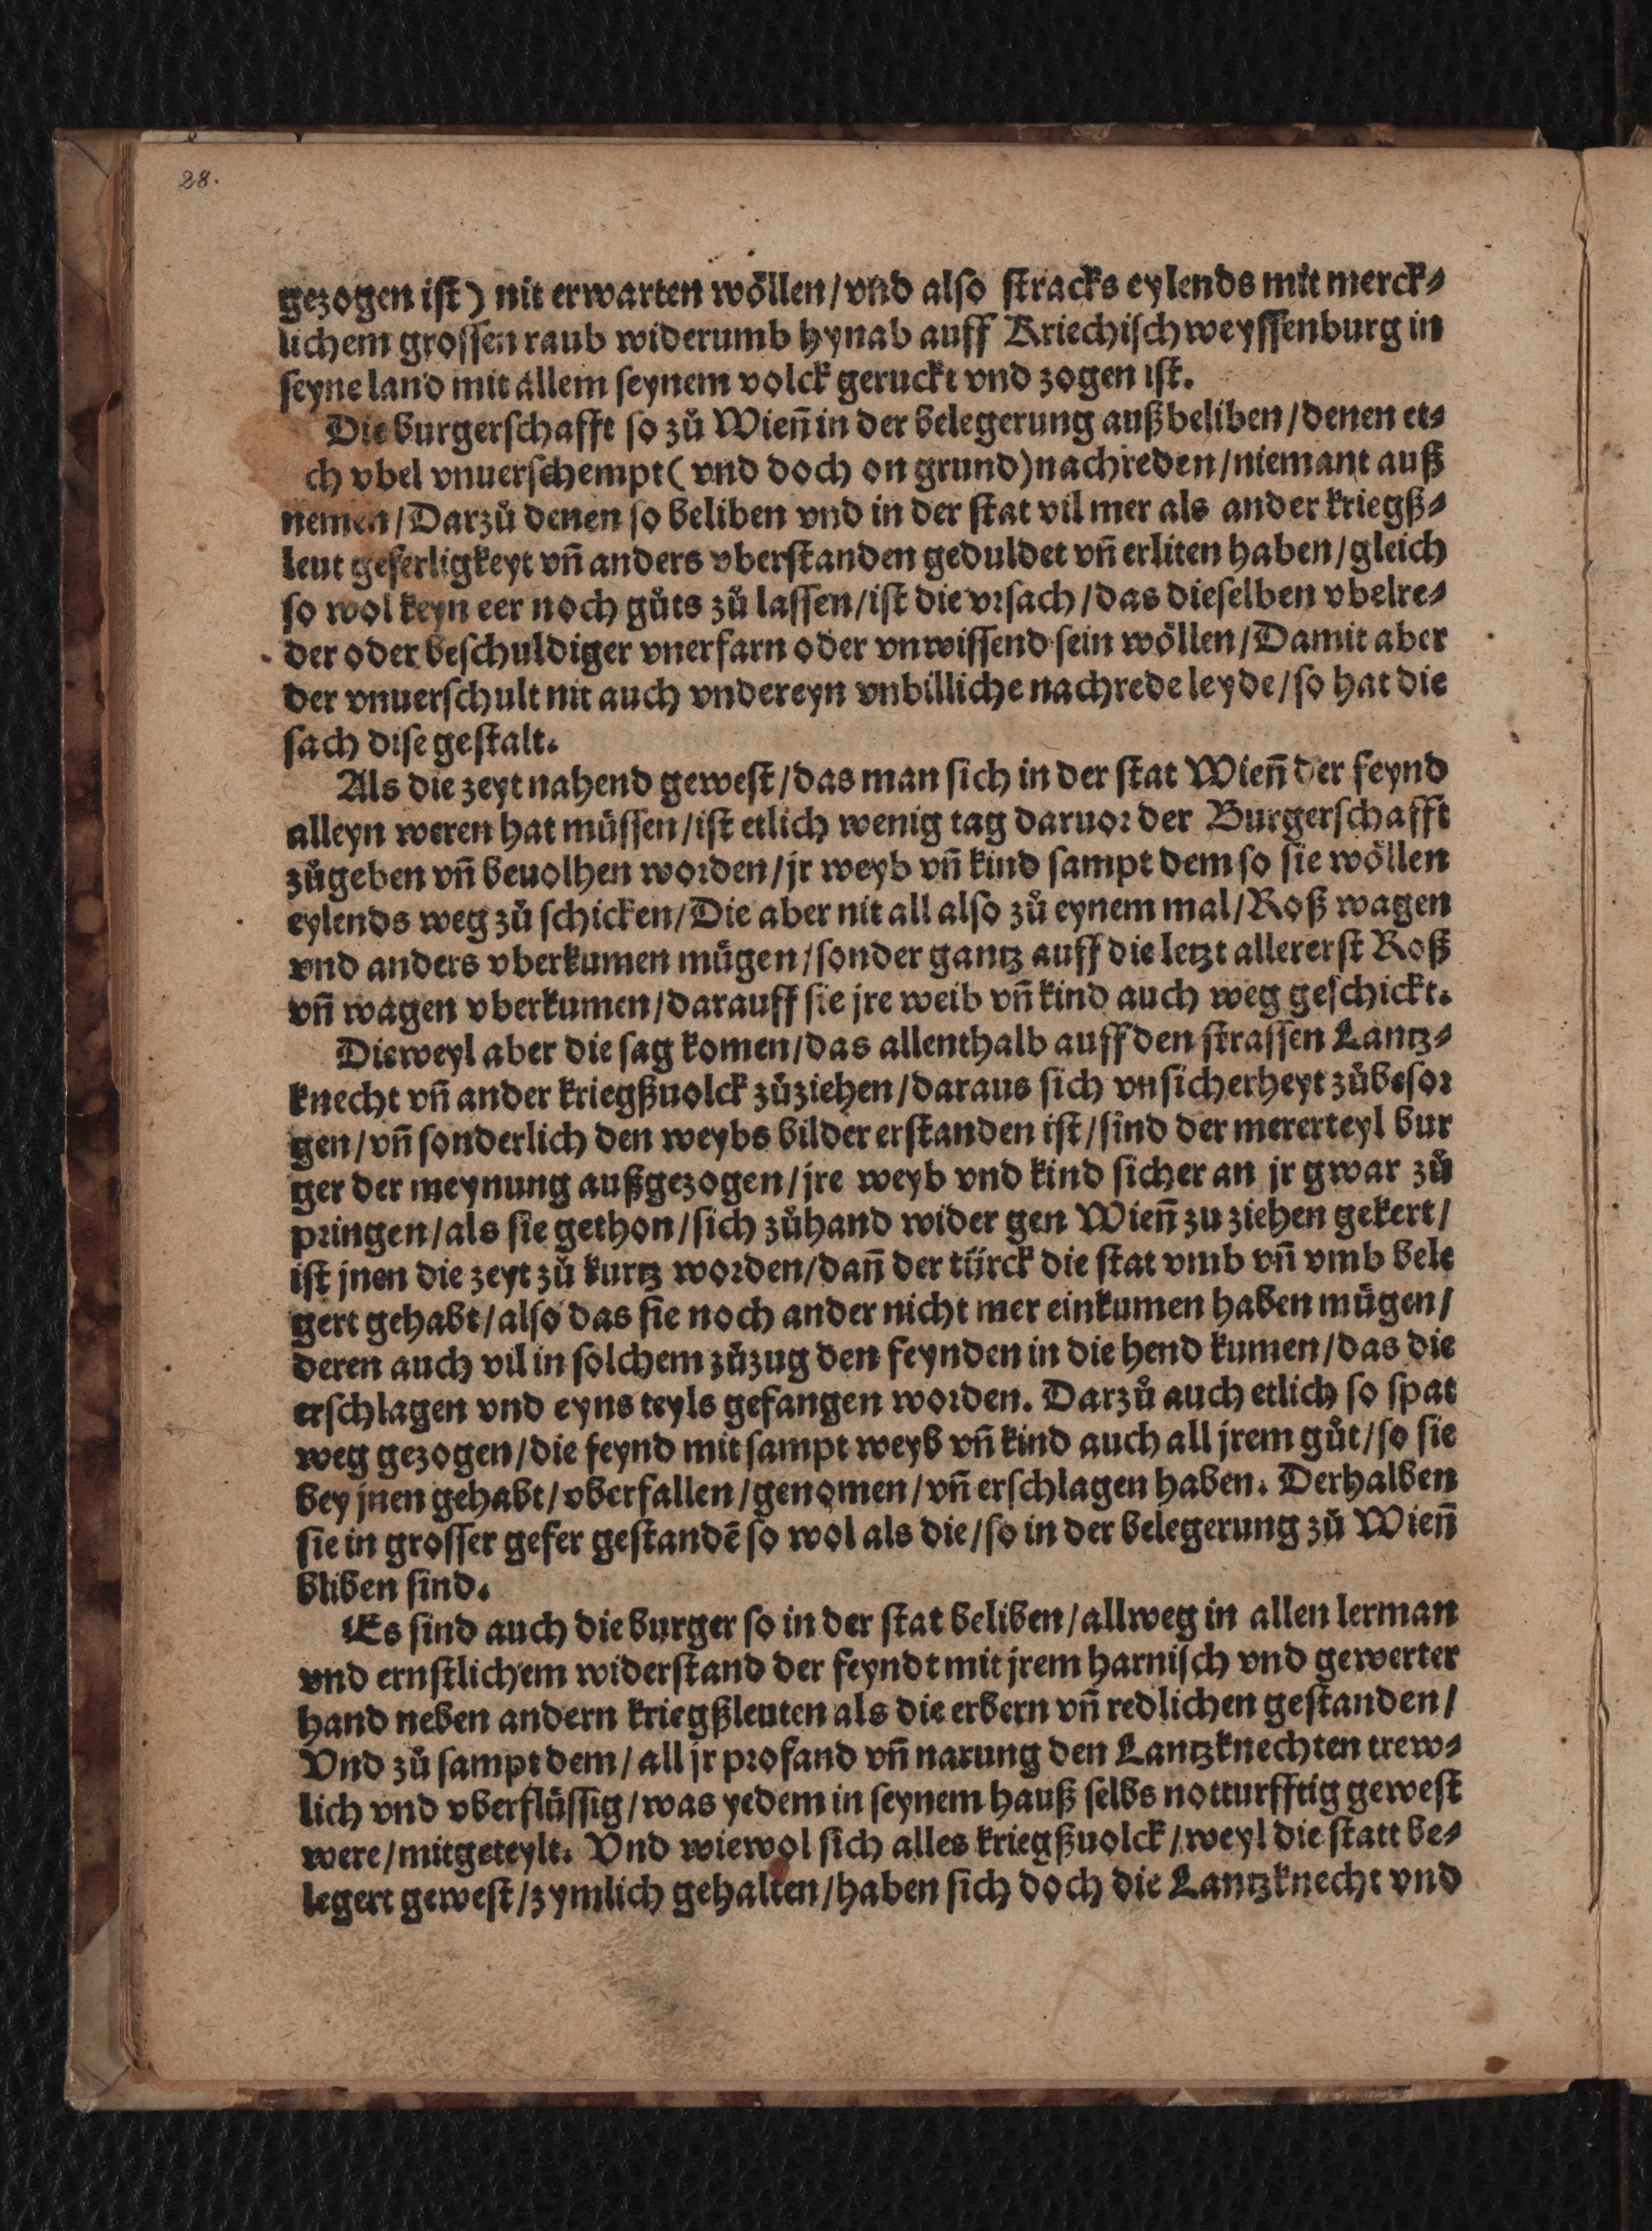 28.
gezogen ist) nit erwarten wöllen/vnd also stracks eylends mit merck⸗
lichem grossen raub widerumb hynab auff Kriechischweyssenburg in
seyne land mit allem seynem volck geruckt vnd zogen ist.
Die burgerschafft so zů Wien̄ in der belegerung außbeliben/denen et⸗
ch vbel vnuerschempt(vnd doch on grund)nachreden/niemant auß
nemen/Darzů denen so beliben vnd in der stat vil mer als ander kriegß⸗
leut geferligkeyt vn̄ anders vberstanden geduldet vn̄ erliten haben/gleich
so wol keyn eer noch gůts zů lassen/ist die vrsach/das dieselben vbelre⸗
der oder beschuldiger vnerfarn oder vnwissend sein wöllen/Damit aber
der vnuerschult nit auch vndereyn vnbilliche nachrede leyde/so hat die
sach dise gestalt.
Als die zeyt nahend gewest/das man sich in der stat Wien̄ der feynd
alleyn weren hat müssen/ist etlich wenig tag daruor der Burgerschafft
zůgeben vn̄ beuolhen worden/jr weyb vn̄ kind sampt dem so sie wöllen
eylends weg zů schicken/Die aber nit all also zů eynem mal/Roß wagen
vnd anders vberkumen mügen/sonder gantz auff die letzt allererst Roß
vn̄ wagen vberkumen/darauff sie jre weib vn̄ kind auch weg geschickt.
Dieweyl aber die sag komen/das allenthalb auff den strassen Lantz⸗
knecht vn̄ ander kriegßuolck zůziehen/daraus sich vnsicherheyt zůbesor
gen/vn̄ sonderlich den weybs bilder erstanden ist/sind der mererteyl bur
ger der meynung außgezogen/jre weyb vnd kind sicher an jr gwar zů
pringen/als sie gethon/sich zůhand wider gen Wien̄ zu ziehen gekert/
ist jnen die zeyt zů kurtz worden/dan̄ der türck die stat vmb vn̄ vmb bele
gert gehabt/also das sie noch ander nicht mer einkumen haben mügen/
deren auch vil in solchem zůzug den feynden in die hend kumen/das die
erschlagen vnd eyns teyls gefangen worden. Darzů auch etlich so spat
weg gezogen/die feynd mit sampt weyb vn̄ kind auch all jrem gůt/so sie
bey jnen gehabt/vberfallen/genomen/vn̄ erschlagen haben. Derhalben
sie in grosser gefer gestandē so wol als die/so in der belegerung zů Wien̄
bliben sind.
Es sind auch die burger so in der stat beliben/allweg in allen lerman
vnd ernstlichem widerstand der feyndt mit jrem harnisch vnd gewerter
hand neben andern kriegßleuten als die erbern vn̄ redlichen gestanden/
Vnd zů sampt dem/all jr profand vn̄ narung den Lantzknechten trew⸗
lich vnd vberflüssig/was yedem in seynem hauß selbs notturfftig gewest
were/mitgeteylt. Vnd wiewol sich alles kriegßuolck/weyl die statt be⸗
legert gewest/zymlich gehalten/haben sich doch die Lantzknecht vnd